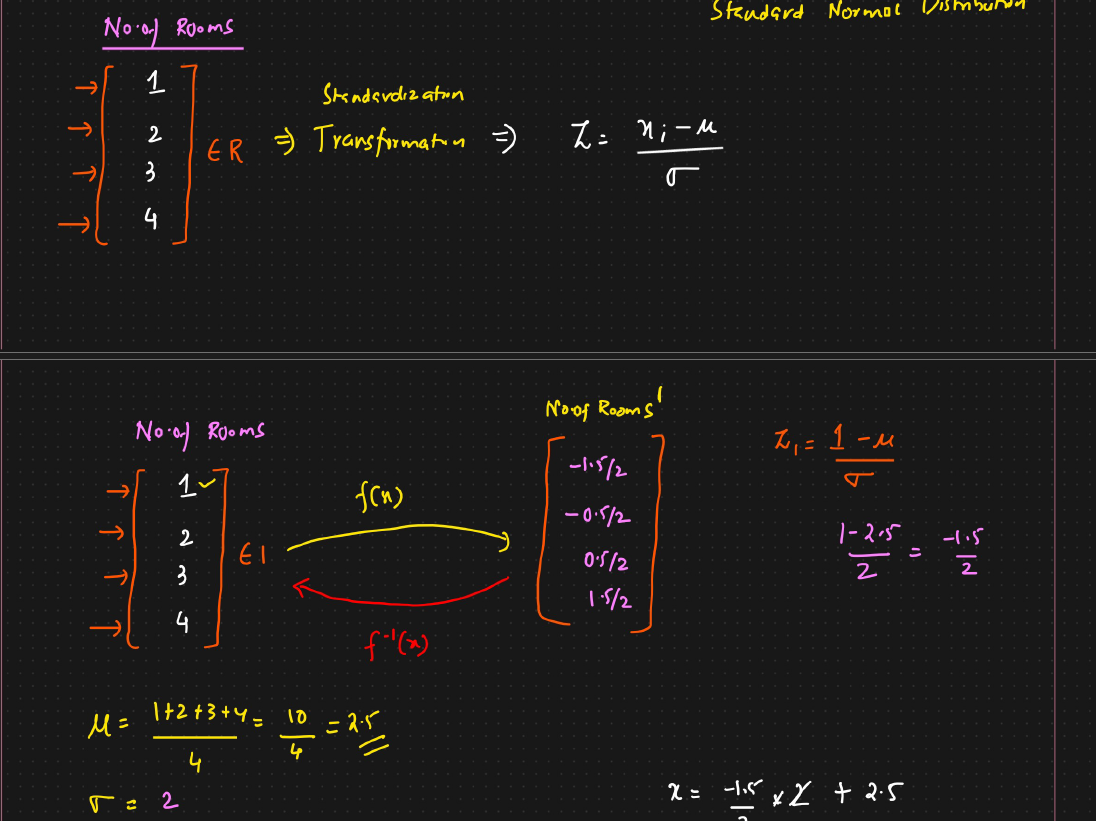 Standard Normal Distribution
No. of Rooms
1
2
3
4
∈ R ⇒ Standardization Transformation ⇒ Z = xi - μ / σ
No. of Rooms
1 ✓
2
3
4
∈ I
f(x)
f⁻¹(x)
No. of Rooms'
-1.5/2
-0.5/2
0.5/2
1.5/2
Z1 = 1 - μ / σ
1 - 2.5 / 2 = -1.5 / 2
μ = 1+2+3+4 / 4 = 10 / 4 = 2.5
σ = 2
x = -1.5 / 2 × 2 + 2.5